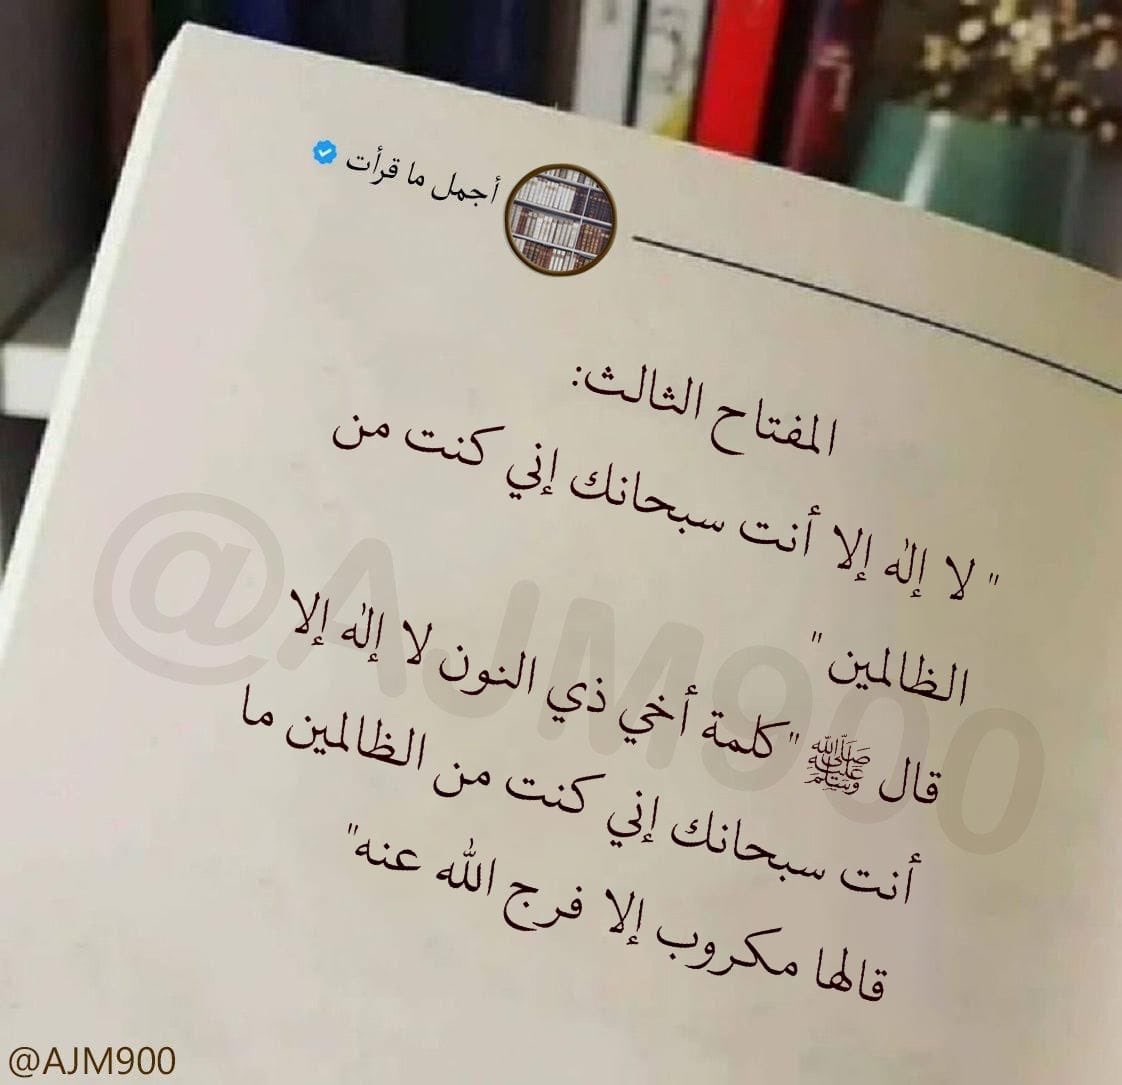 أجمل ما قرأت
المفتاح الثالث:
" لا إلٰه إلا أنت سبحانك إني كنت من
الظالمين "
قال ﷺ "كلمة أخي ذي النون لا إلٰه إلا
أنت سبحانك إني كنت من الظالمين ما
قالها مكروب إلا فرج الله عنه"
@AJM900
@AJM900